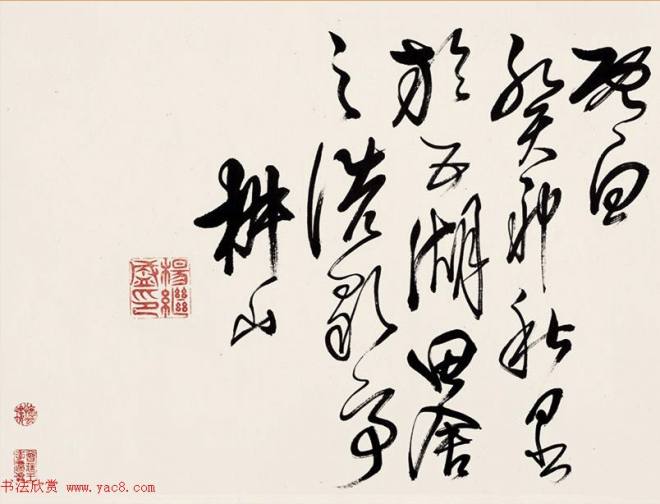 癸卯秋
於五湖田舍
之浩歌亭
耕山
楊繼
盛印
书法欣赏 www.yac8.com